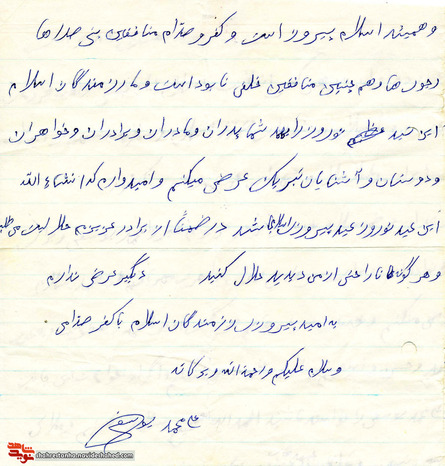 و همیشه اسلام پیروز است و کفر و صدام منافقین بنی صدرها
رجوی ها و هم چنین منافقین خلقی نابود است و ما رزمندگان اسلام
این عید عظیم نوروز را به شما پدران و مادران و برادران و خواهران
و دوستان و آشنایان تبریک عرض میکنم و امیدوارم که انشاء الله
این عید نوروز عید پیروزی اسلام باشد در ضمن از برادر عزیزم حلالیت می طلبم
و هر گونه ناراحتی از من دیدید حلال کنید دیگر عرضی ندارم
به امید پیروزی رزمندگان اسلام با کفر صدامی
وسلام علیکم و رحمة الله و برکاته
محمد یوسفی
shahrestanha.navideshahed.com